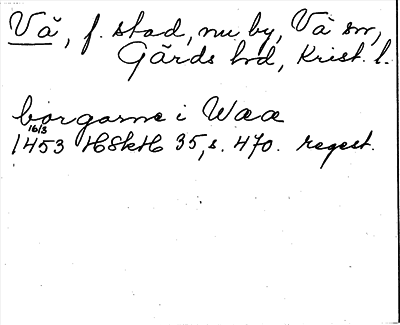 Vä, f. stad, nu by, Vä sn,
Gärds hd, Krist. l.
borgarne i Waæ
16/3
1453 HSkH 35, s. 470. regest.